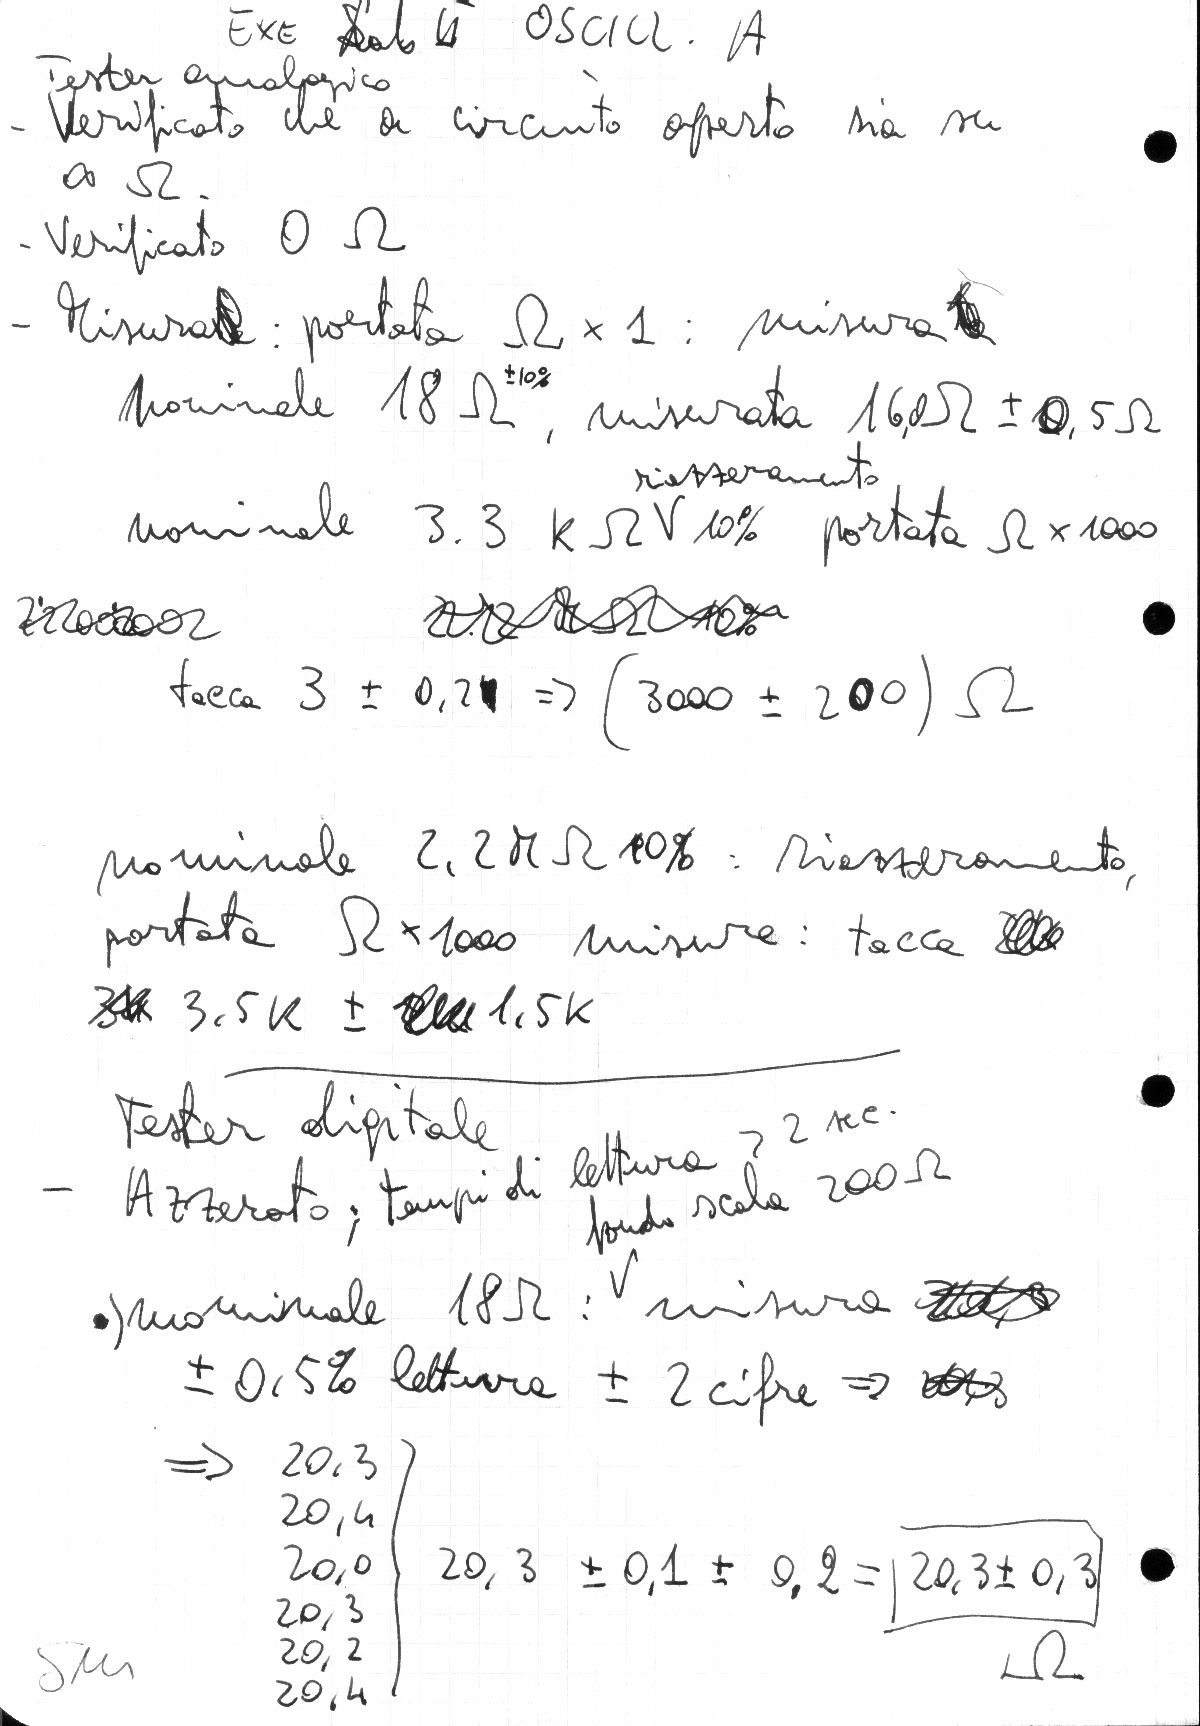 EXE OSCILL. A
Tester analogico
- Verificato che a circuito aperto sia su
∞ Ω.
- Verificato 0 Ω
- Misura : portata Ω × 1 : misura
Nominale 18 Ω ±10%, misurata 16,0Ω ± 0,5 Ω
riazzeramento
nominale 3.3 k Ω √ 10% portata Ω × 1000
tacca 3 ± 0,2 => (3000 ± 200) Ω
nominale 2,2 M Ω 10% : riazzeramento,
portata Ω × 1000 misure : tacca
3,5K ± 1,5K
Tester digitale
- Azzerato; tempi di lettura > 2 sec.
fondo scala 200 Ω
•) nominale 18Ω : √ misura
± 0,5% lettura ± 2 cifre =>
=> 20,3
20,4
20,0
20,3 ± 0,1 ± 0,2 = 20,3 ± 0,3
20,3
20,2
Ω
20,4